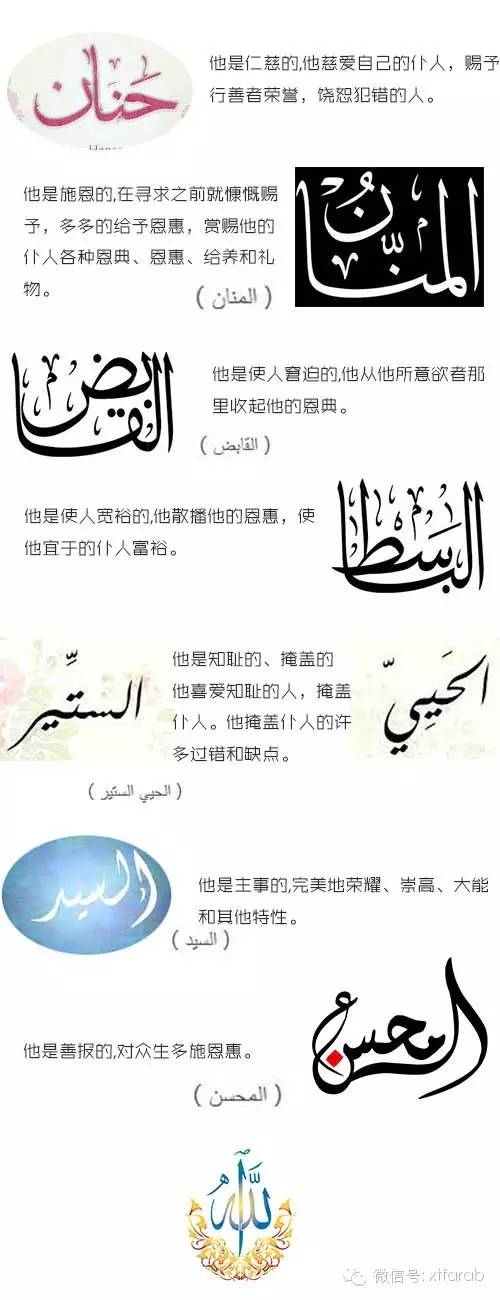 حنان
他是仁慈的,他慈爱自己的仆人，赐予
行善者荣誉，饶恕犯错的人。
他是施恩的,在寻求之前就慷慨赐
予，多多的给予恩惠，赏赐他的
仆人各种恩典、恩惠、给养和礼
物。
( المنان )
المنّان
القابض
他是使人窘迫的,他从他所意欲者那
里收起他的恩典。
( القابض )
他是使人宽裕的,他散播他的恩惠，使
他宜于的仆人富裕。
الباسط
الستّير
他是知耻的、掩盖的
他喜爱知耻的人，掩盖
仆人。他掩盖仆人的许
多过错和缺点。
الحَيِيّ
( الحيي الستير )
السيد
他是主事的,完美地荣耀、崇高、大能
和其他特性。
( السيد )
他是善报的,对众生多施恩惠。
( المحسن )
المحسن
الله
微信号: xtfarab